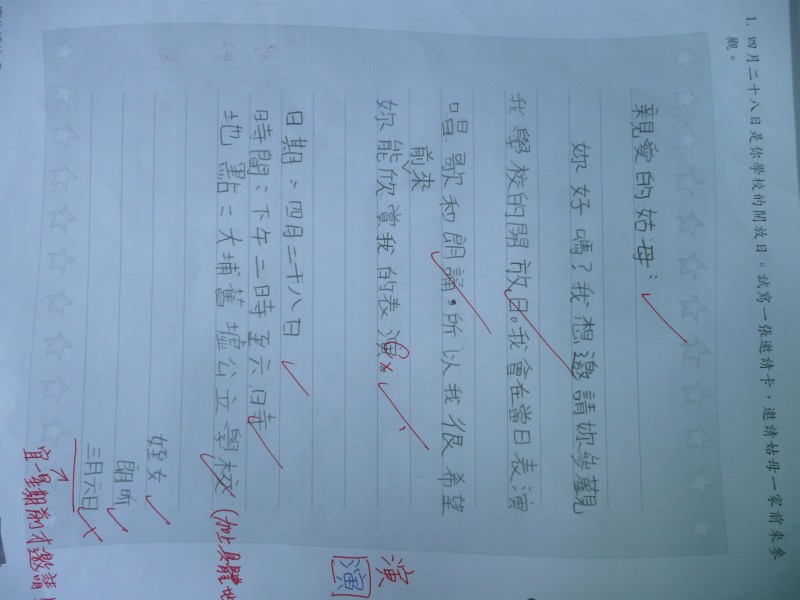 1. 四月二十八日是你學校的開放日。試寫一張邀請卡，邀請姑母一家前來參
觀。
親愛的姑母：
妳好嗎？我想邀請妳參觀
我學校的開放日。我會在當日表演
唱歌和朗誦，所以我很希望
前來
妳能欣賞我的表演。
日期：四月二十八日
時間：下午二時至六時
地點：大埔舊墟公立學校
(加上具體地
姪女
朗昕
三月六日
宜一星期前才邀請
演
演